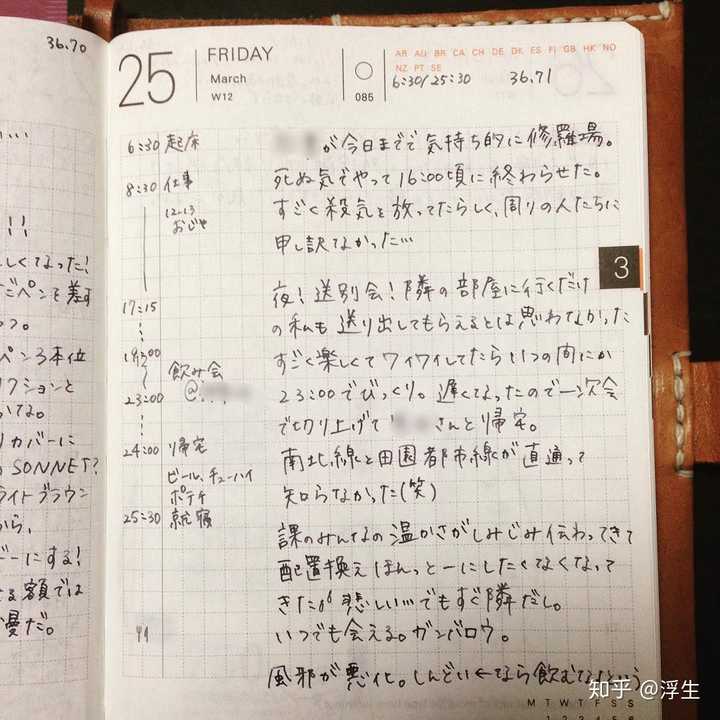 36.70
25
FRIDAY
March
W12
085
AR AU BR CA CH DE DK ES FI GB HK NO
NZ PT SE
6:30/25:30 36.71
6:30 起床
8:30 仕事
12-13
おじや
17:15
19:00
飲み会
@
23:00
24:00 帰宅
ビール、チューハイ
ポテチ
25:30 就寝
が今日までで気持ち的に修羅場。
死ぬ気でやって16:00頃に終わらせた。
すごく殺気を放ってたらしく、周りの人たちに
申し訳なかった…
夜!送別会!隣の部屋に行くだけ
の私も送り出してもらえるとは思わなかった
すごく楽しくてワイワイしてたらいつの間にか
23:00でびっくり。遅くなったので一次会
で切り上げて さんと帰宅。
南北線と田園都市線が直通って
知らなかった(笑)
課のみんなの温かさがしみじみ伝わってきて
配置換えほんっとーにしたくなくなって
きたが悲しい…でもすぐ隣だし。
いつでも会える。ガンバロウ。
風邪が悪化。しんどい←なら飲むなという
3
!!
しくてなった!
ペンを差す
つ。
ペン3本位
クションと
いてる。
リカバーに
SONNET?
ライトブラウン
から、
にする!
る額では
慢だ。
M T W T F S S
1 2 3 4 5 6
知乎 @浮生